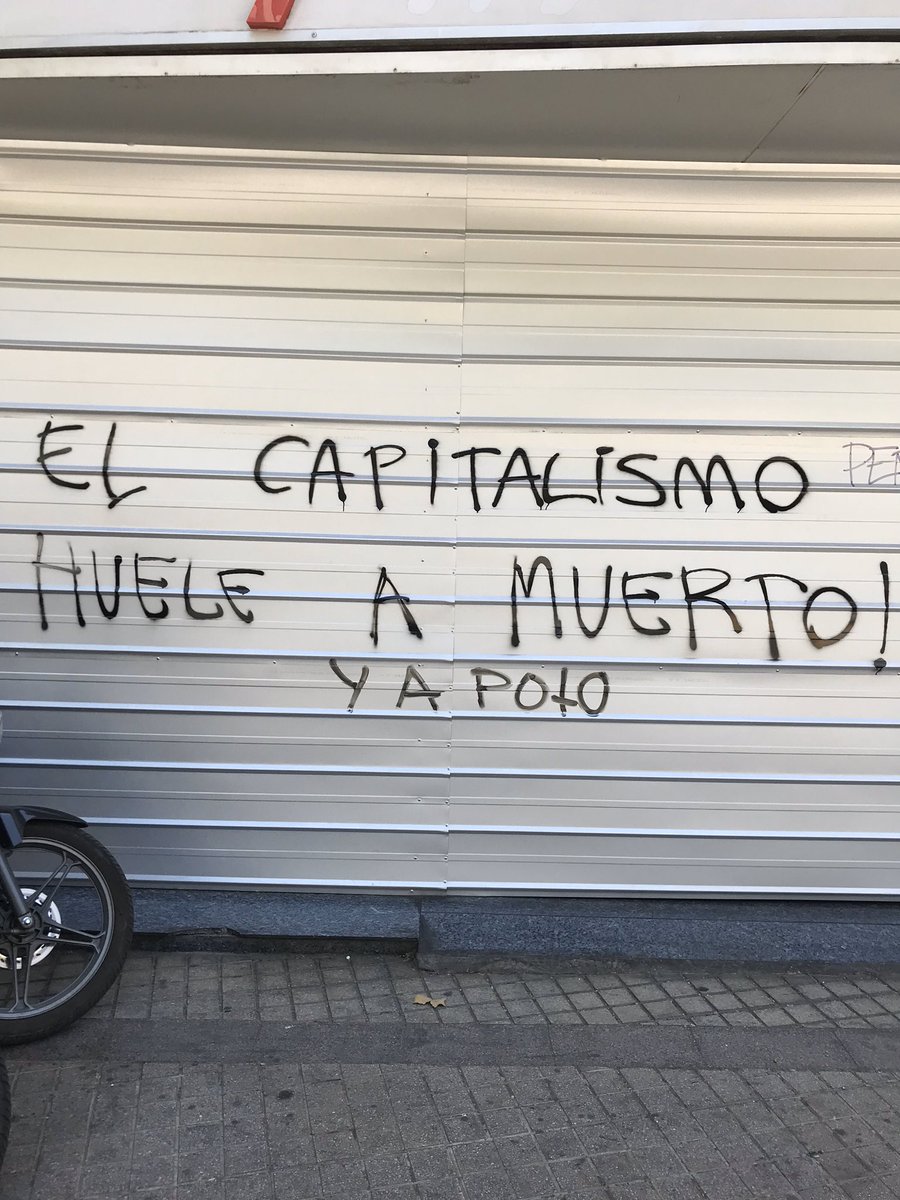 EL CAPITALISMO
HUELE A MUERTO!
Y A POTO